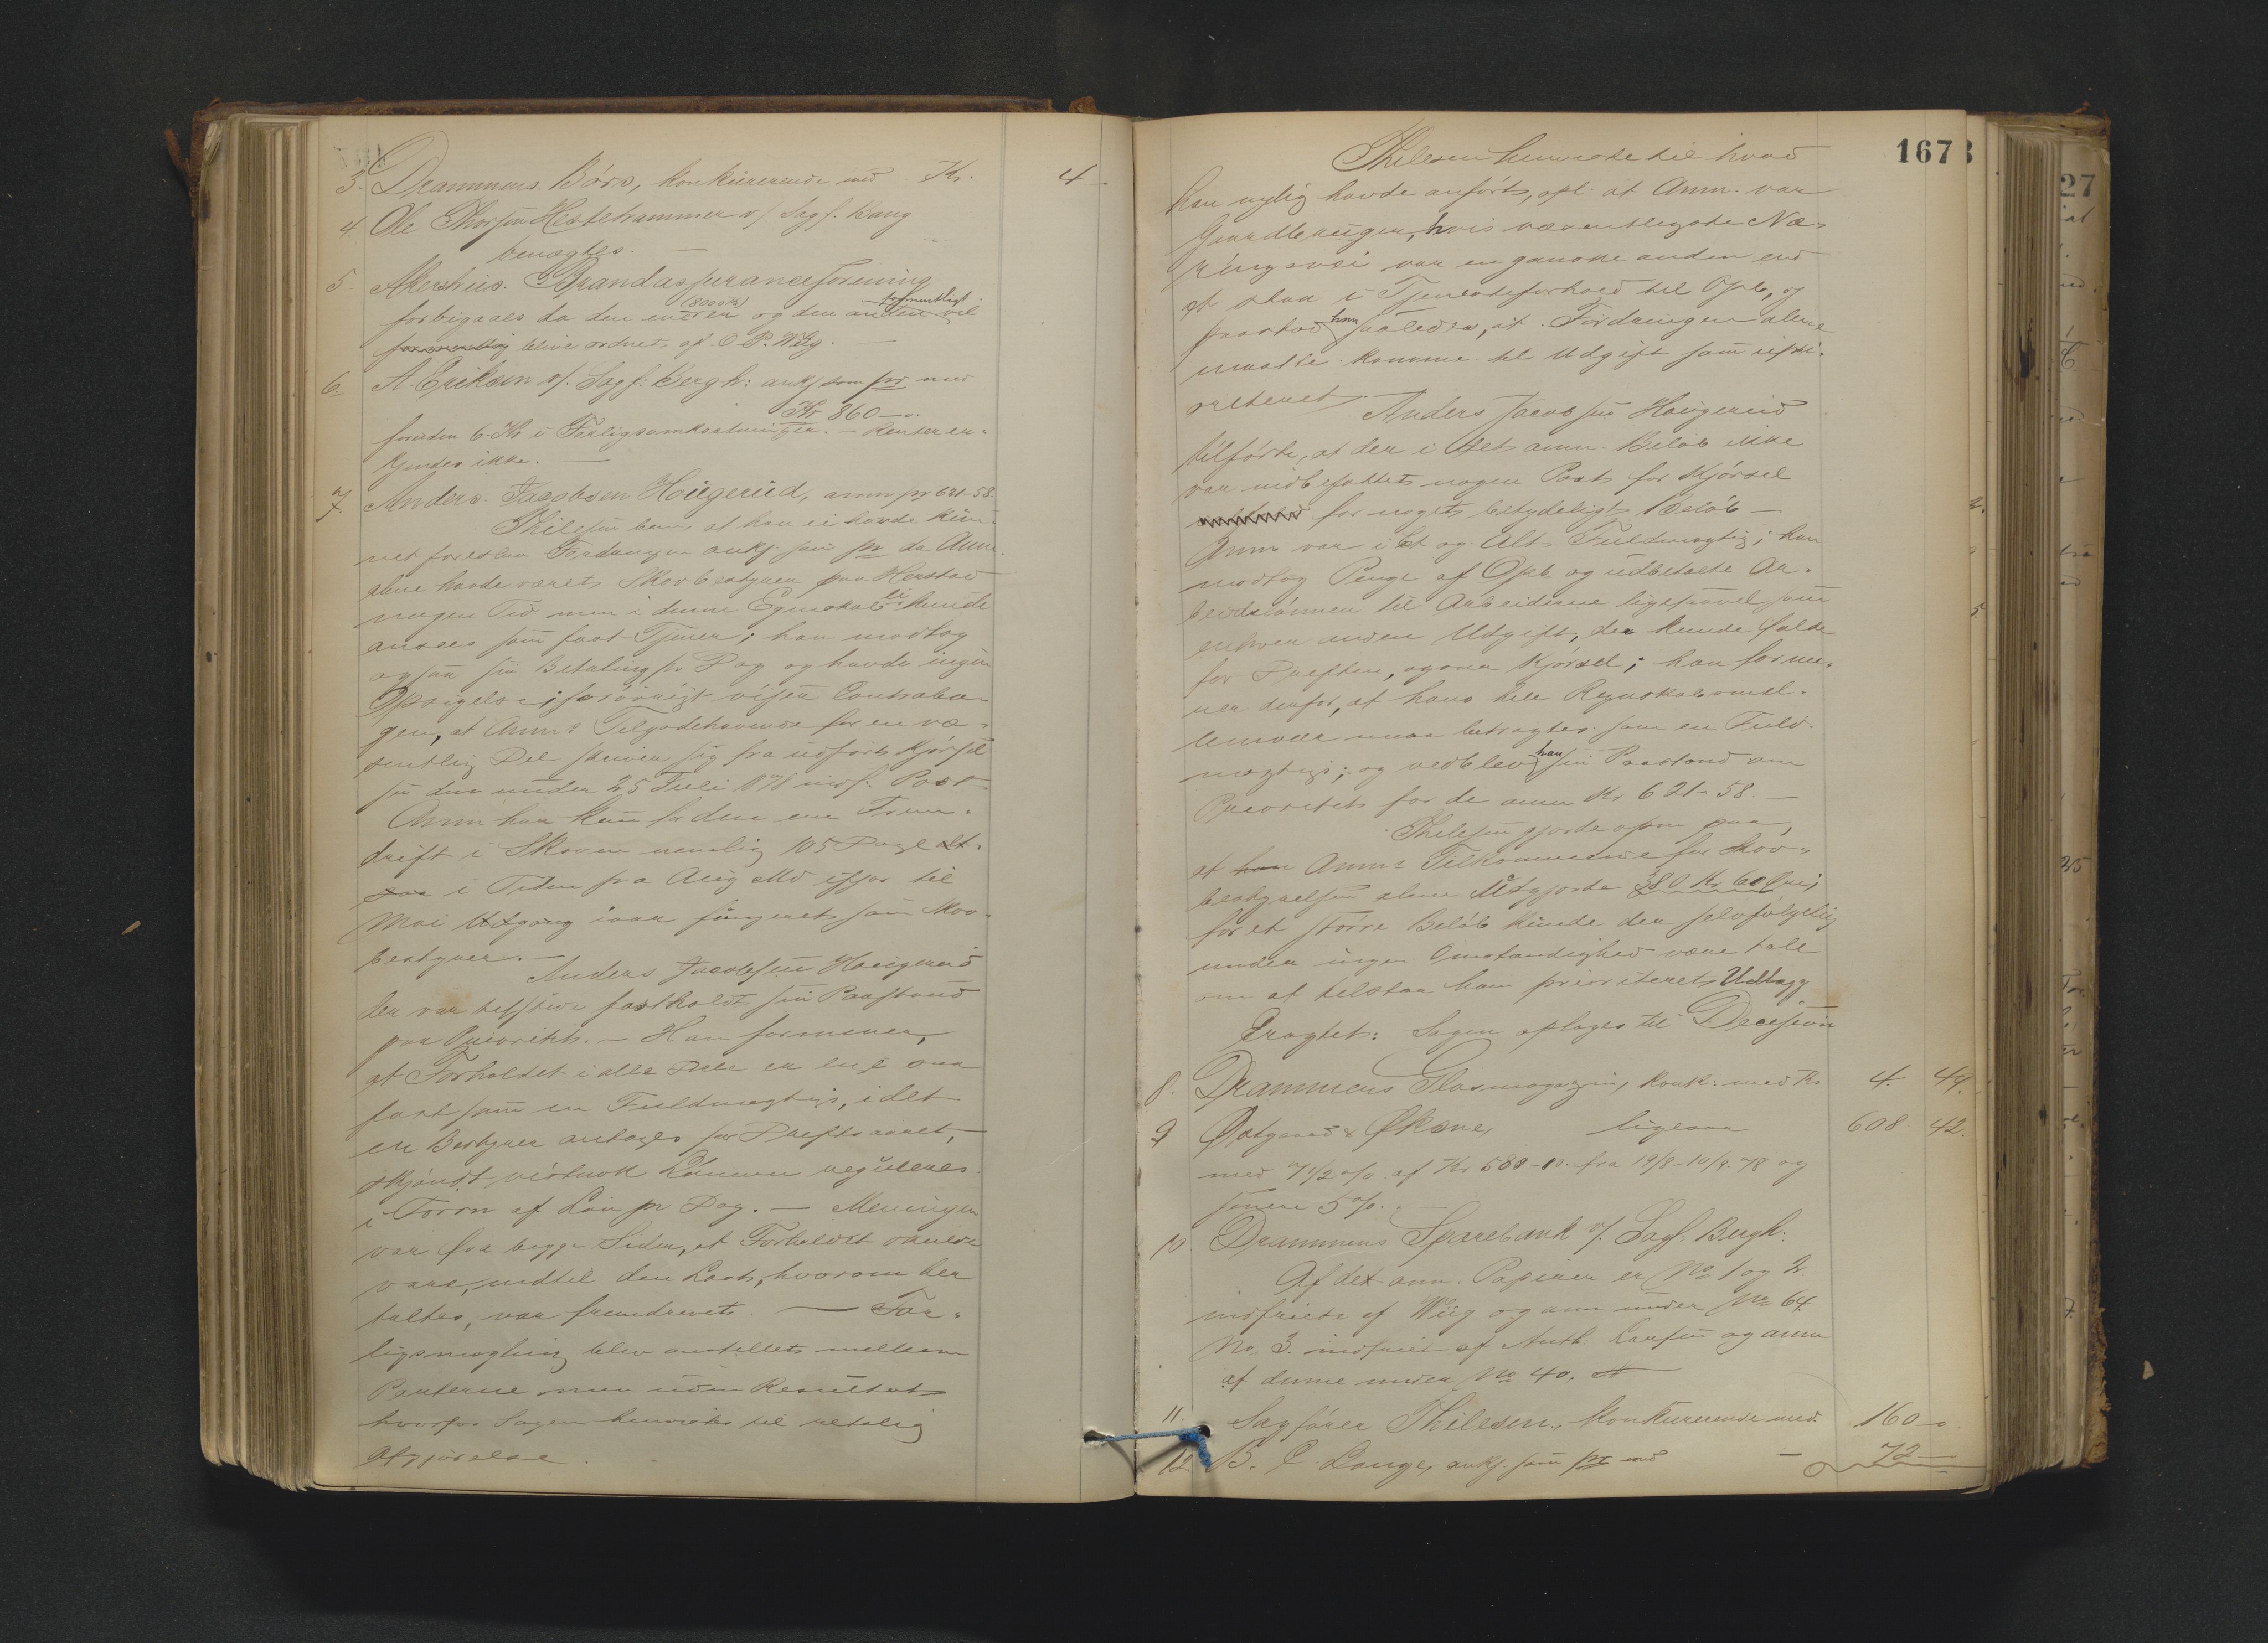 3. Drammens Börs, konkurrerende med Kr. 4
4. Ole Thorsen Hestehammer v/ Sagf. Bang
benegtes.
5. Akershus Brandassuranceforening
forbigaaes da den ene er (800 Kr) og den anden formentligt vil
blive ordnet af O. P. Wiig.
6. A. Eriksen v/ Sagf. Bergh: ankj. som pr med
Kr 860
foruden 6 Kr i Forligsomkostninger. – Renter er-
kjendes ikke. –
7. Anders Jacobsen Hougerud, anm pr 621-58.
Thilesen bem. at han ei havde kun-
net foreslaa Fordringen ankj. som pr da Anm.
alene havde været Skovbestyrer paa Herstad
nogen Tid men i denne Egenskab ei kunde
ansees som fast Tjener; han modtog
ogsaa sin Betaling pr Dag og havde ingen
Opsigelse; forövrigt viser Contrabo-
gen, at Anms Tilgodehavende for en væ-
sentlig Del skriver sig fra udfört Kjörsel
se den under 25 Juli 1878 indf. Post.
Anm har kun for den ene Tem-
drift i Skoven nemlig 105 Dage alt-
saa i Tiden fra Aug Md ifjor til
Mai Udgang iaar fungeret som Skov-
bestyrer. –
Anders Jacobsen Hougerud
der var tilstede fastholdt sin Paastand
paa Prioritet. – Han formener,
at Forholdet i alle Dele er lige saa
fast som en Fuldmægtigs, idet
en Bestyrer antages for Driftsaaret,
skjöndt vistnok Lönnen reguleres
i Form af Lön pr Dag. – Meningen
var fra begge Sider, at Forholdet skulde
vare, indtil den Last, hvorom her
taltes, var fremdrevet. – For-
ligsmægling blev anstillet mellem
Parterne men uden Resultat
hvorfor Sagen henvistes til retslig
Afgjörelse.
1673
Thilesen henviste til hvad
han nylig havde anfört, opl. at Anm. var
Gaardbruger, hvis væsentligste Næ-
ringsvei var en ganske anden end
at staa i Tjenesteforhold til Opb, og
paastod han saaledes, at Fordringen alene
maatte komme til Udgift som upri-
oriteret.
Anders Jacobsen Hougerud
tilförte, at der i det anm. Belöb ikke
var indbefattet nogen Post for Kjörsel
for noget betydeligt Belöb –
Anm var i Et og Alt Fuldmægtig; han
modtog Penge af Opb og udbetalte Ar-
beidslönnen til Arbeiderne ligesaavel som
enhver anden Udgift, der kunde falde
for Driften, ogsaa Kjörsel; han forme-
ner derfor, at hans hele Regnskabsmel-
lemvær maa betragtes som en Fuld-
mægtigs; og vedblev han sin Paastand om
Prioritet for de anm Kr 621-58. –
Thilesen gjorde opm paa,
at Anms Tilkommende for Skov-
bestyrelsen alene udgjorde 380 Kr 60 Öre;
for et större Belöb kunde der selvfölgelig
under ingen Omstændighed være tale
om at tilstaa ham prioriteret Udlæg
Eragtet: Sagen optages til Decision
8. Drammens Glasmagazin, konk: med Kr 4. 49.
9 Östgaard & Öksne, ligesaa 608 42.
med 7 1/2 % af Kr 588-10. fra 19/8-10/9.78 og
senere 5 %. –
10 Drammens Sparebank v/ Sagf. Bergh.
Af det anm. Papirer er No 1 og 2.
indfriet af Wiig og anm under No 64
No. 3. indfriet af Anth. Larsen og anm
af denne under No 40.
11. Sagförer Thilesen, konkurrerende med 160 "
12. B. C Lange, ankj. som pr med – 72 –